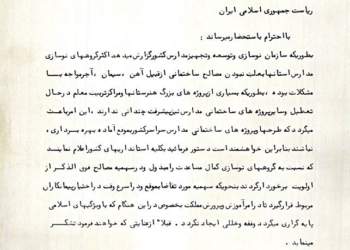 ریاست جمهوری اسلامی ایران
بااحترام باستحضارمیرساند :
بطوریکه سازمان نوسازی وتوسعه وتجهیزمدارس کشورگزارش میدهد اکثرگروههای نوسازی
مدارس استانهابعلت نبودن مصالح ساختمانی ازقبیل آهن ، سیمان ، آجرمواجه با
مشکلات بوده ، بطوریکه بسیاری ازپروژه های هنرستانهاومراکزتربیت معلم درحال
تعطیل وسایرپروژه های ساختمانی مدارس نیزپیشرفت چندانی ندارند ، این امرباعث
میگردد که طرحهاوپروژه های ساختمانی مدارس سراسرکشوربموقع آماده بهره برداری ،
نباشند بنابراین خواهشمند است دستورفرمائید بکلیه استانداریهای کشوراعلام نمایند
که نسبت به گروههای نوسازی کمال مساعدت رامبذول ودرسهمیه مصالح فوق الذکراز
اولویت برخوردارگردند بنحویکه سهمیه موردتقاضابموقع ودراسرع وقت دراختیارپیمانکاران
مربوط قرارگیرد تادرامرآموزش وپرورش مملکت بخصوص دراین هنگام که باویژگیهای اسلامی
پایه گزاری میگردد وقفه وخللی ایجاد نگردد . قبلا" ازعنایتی که خواهند فرمود تشکر
مینماید .